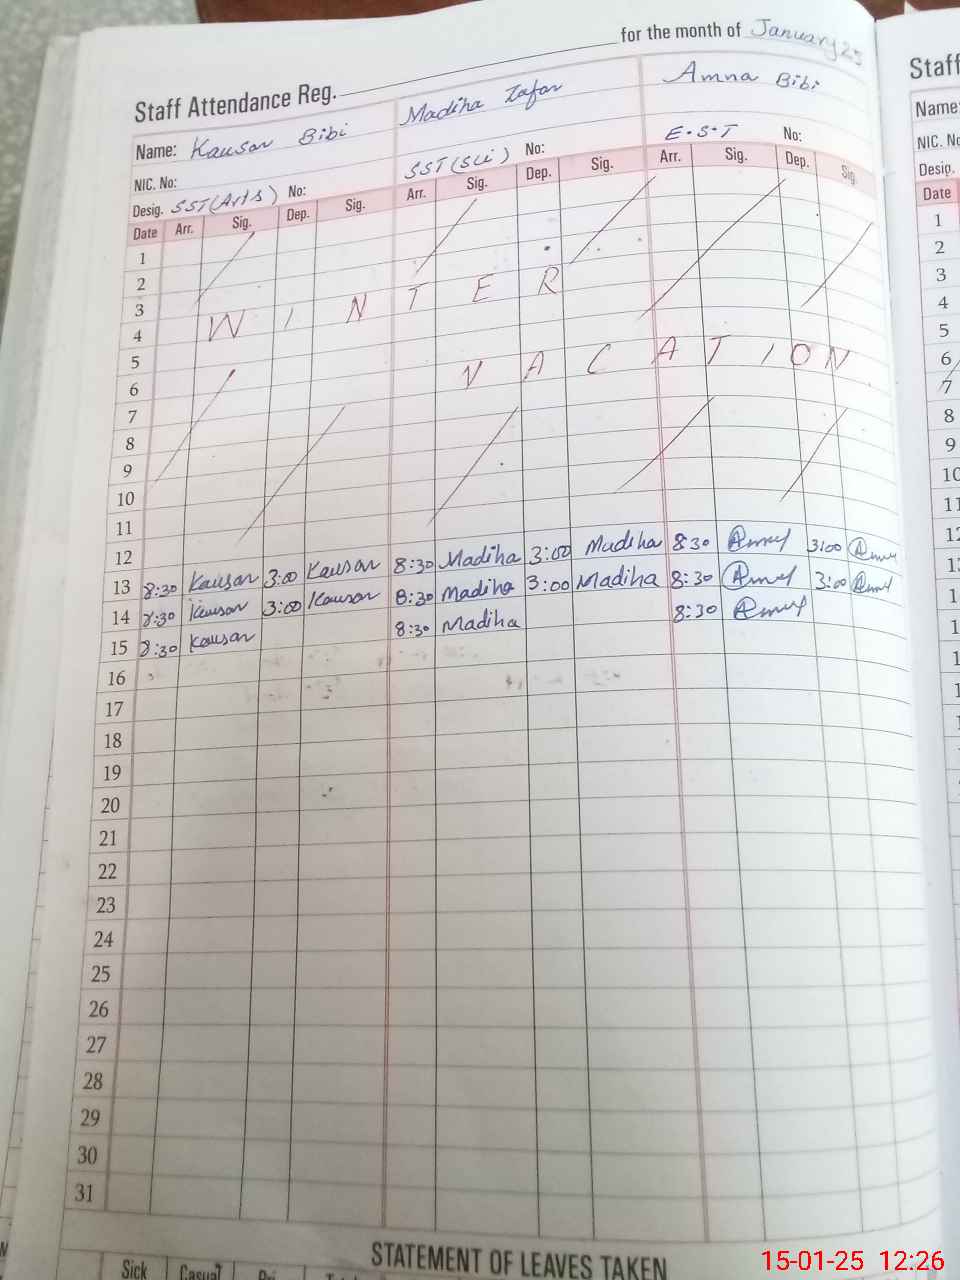 for the month of January 25
Staff Attendance Reg.
Name: Kausar Bibi Madiha Zafar Amna Bibi
NIC. No:
Desig. SST (Arts) No: SST (Sci) No: E.S.T No:
Date Arr. Sig. Dep. Sig. Arr. Sig. Dep. Sig. Arr. Sig. Dep. Sig.
1
2
3
WINTER
4
5
VACATION
6
7
8
9
10
11
12
13 8:30 Kausar 3:00 Kausar 8:30 Madiha 3:00 Madiha 8:30 3:00
14 8:30 Kausar 3:00 Kausar 8:30 Madiha 3:00 Madiha 8:30 3:00
15 8:30 Kausar 8:30 Madiha 8:30
16
17
18
19
20
21
22
23
24
25
26
27
28
29
30
31
STATEMENT OF LEAVES TAKEN
Sick Casual
Staff
Name:
NIC. No
Desig.
Date
1
2
3
4
5
6
7
8
9
10
11
12
15-01-25 12:26